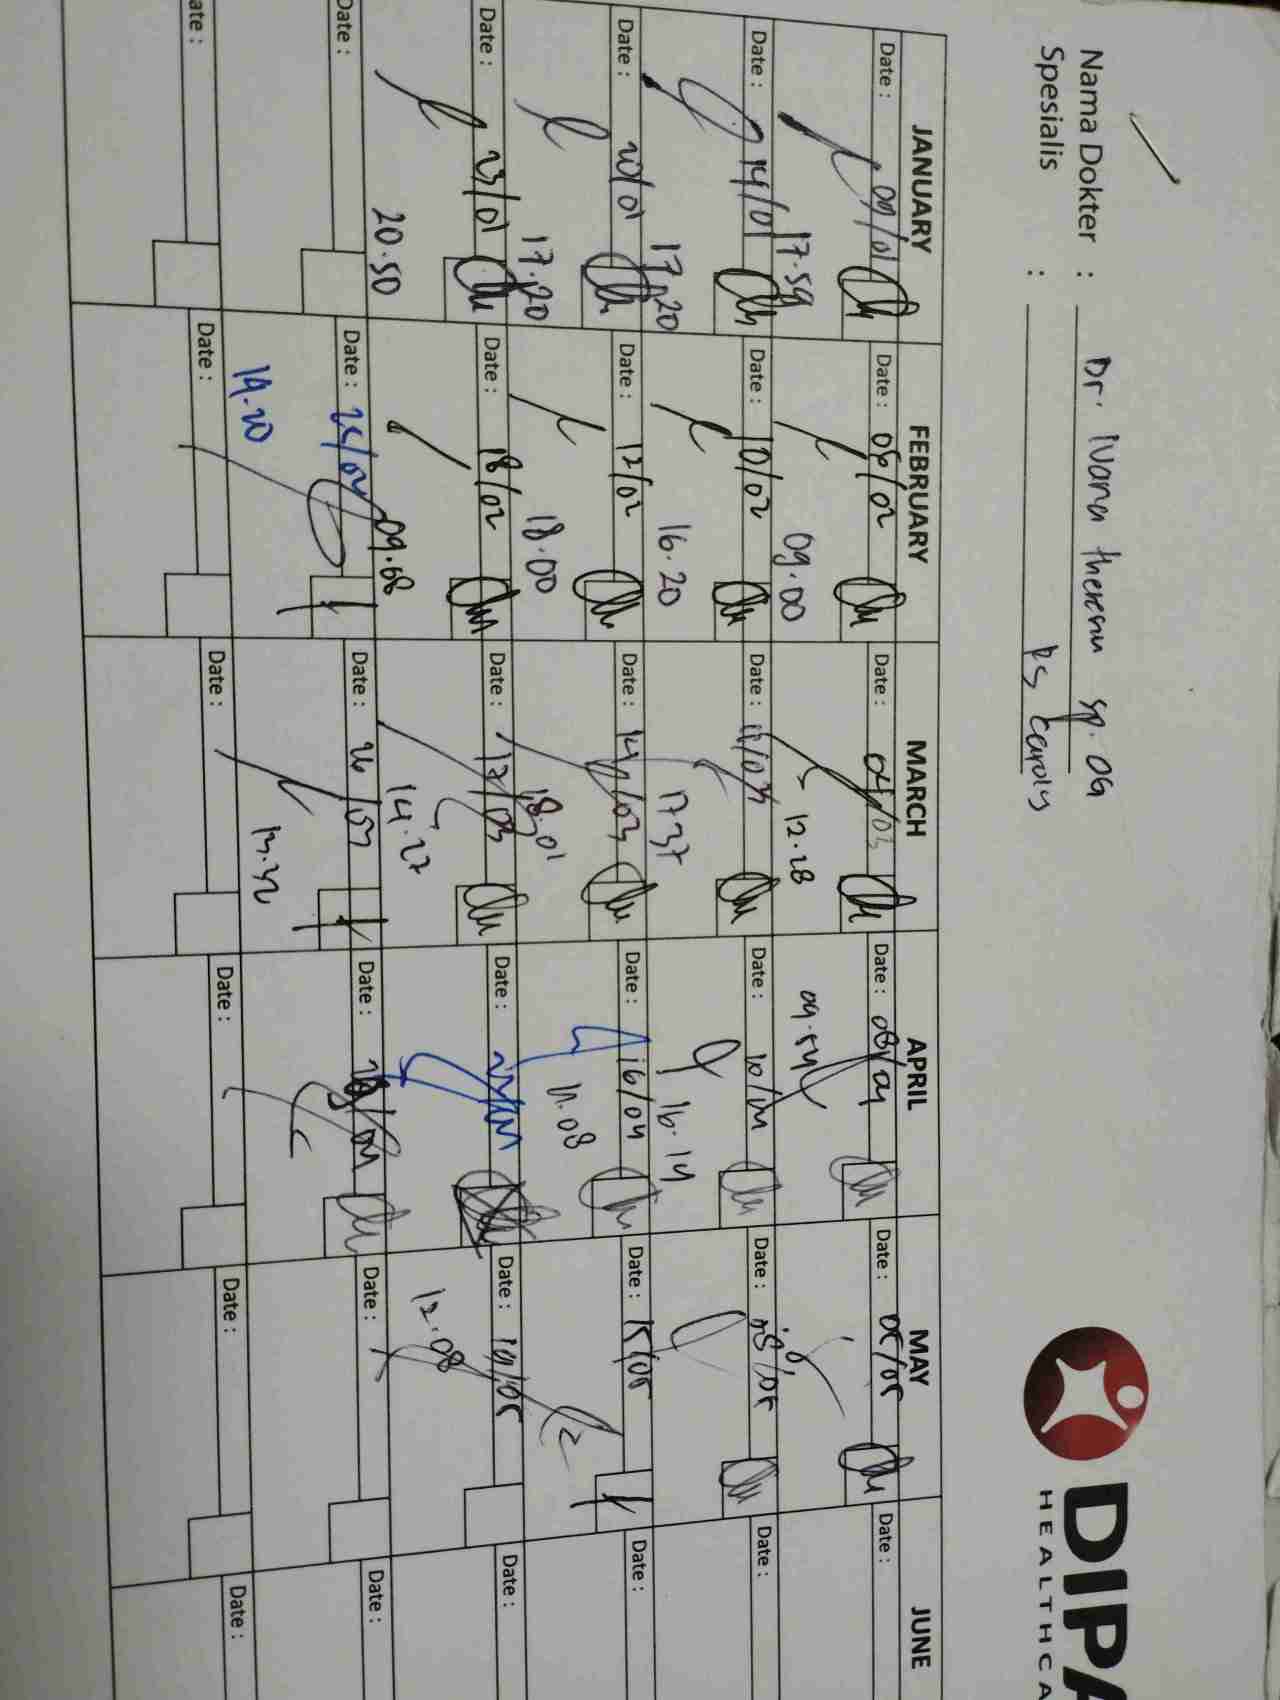 DIPA
HEALTHCA
Nama Dokter : Dr. Ivana theresia sp. OG
Spesialis : RS Carolus
JANUARY FEBRUARY MARCH APRIL MAY JUNE
Date : 09/01 Date : 06/02 Date : 04/03 Date : 08/04 Date : 05/05 Date :
17.59 09.00 12.28 09.54
Date : 14/01 Date : 10/02 Date : 11/03 Date : 10/04 Date : 08/05 Date :
17.20 16.20 17.37 16.14
Date : 20/01 Date : 12/02 Date : 14/03 Date : 16/04 Date : 15/05 Date :
17.20 18.00 18.01 11.08
Date : 23/01 Date : 18/02 Date : 17/03 Date : Date : 19/05 Date :
20.50 09.68 14.27 12.08
Date : Date : 25/02 Date : 26/03 Date : Date : Date :
14.20 13.32
Date : Date : Date : Date : Date : Date :